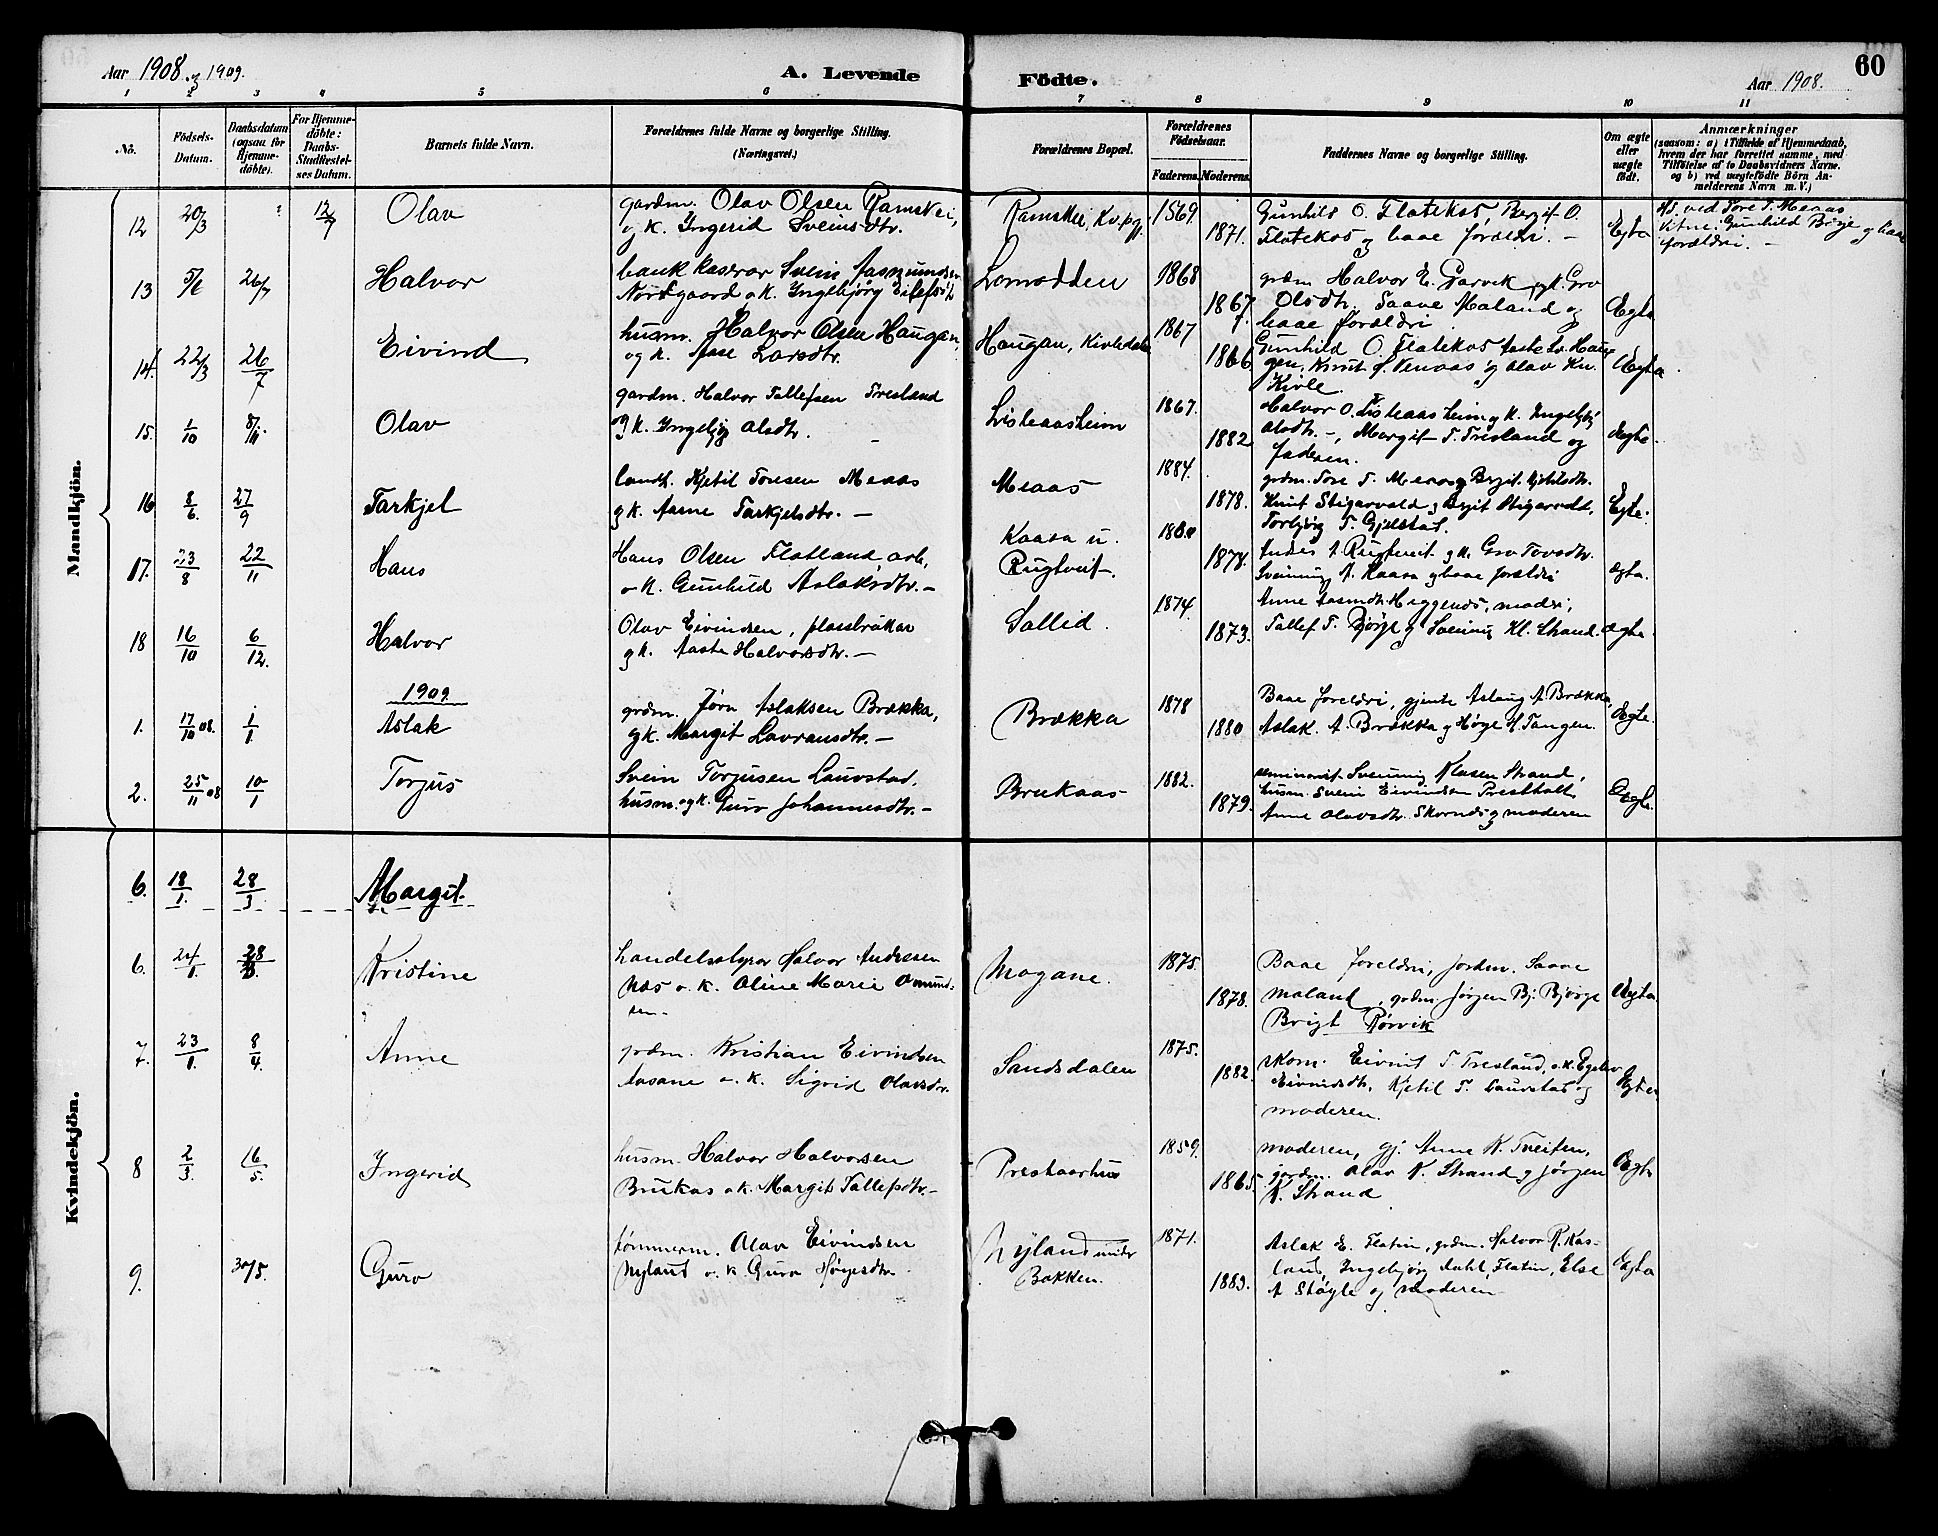 Aar 1908 og 1909.
A. Levende Födte.
Aar 1908.
60
1 2 3 4 5 6 7 8 9 10 11
No.
Födsels-Datum.
Daabsdatum (ogsaa for Hjemme-döbte).
For Hjemme-döbte: Daabs-Stadfæstel-ses Datum.
Barnets fulde Navn.
Forældrenes fulde Navne og borgerlige Stilling.
(Næringsvei.)
Forældrenes Bopæl.
Forældrenes Födselsaar.
Faderens. Moderens.
Faddernes Navne og borgerlige Stilling.
Om ægte eller uægte födt.
Anmærkninger
(saasom: a) i Tilfælde af Hjemmedaab,
hvem der har forrettet samme, med
Tilföielse af to Daabsvidners Navne.
og b) ved uægtefödte Börn An-
melderens Navn m. V.)
Mandkjön.
12 20/3 12/7 Olav
gardm. Olav Olsen Ramskei,
og k. Ingerid Sveinsdtr.
Ramskei, Kv.pgj. 1869 1871.
Gunhild O. Flatekos, Bergit O.
Flatekos og baae forældri. –
Egta
Hd. ved Tore T. Meaas
Vitne: Gunhild Børge og baae
forældri. –
13 5/6 26/7 Halvor
bank kaserar Svein Aasmundsen
Nordgaard o k. Ingebjørg Eilefsdt.
Lomodden 1868 1867
grdm Halvor E. Garvik og k. Gro
Olsdtr. Saave Maland og
baae forældri
Egta
14. 22/3 26/7 Eivind
husm. Halvor Olsen Haugan
og k. Aase Larsdtr.
Haugan, Kivledalen 1867 1866
Gunhild O. Flatekos Aaste Sv. Hau-
gen, Knut Venaas og Olav Kn.
Kivle.
Ægta
15. 1/10 8/11 Olav
gardm. Halvor Tallefsen Tresland
og k. Ingebjg Olsdtr.
Lisleaasheim 1867. 1882
Halvor O. Lisleaasheim og k. Ingebjg
Olsdtr. –, Margit T. Tresland og
faderen.
Ægte.
16 8/6. 27/9 Tarkjel
landh. Kjetil Toresen Meaas
og k. Aasne Tarkjelsdtr. –
Meaas 1884. 1878.
grdm. Tore T. Meaas og Bergit Kjetilsdtr.
Knut Stigarvald og Bergit Stigarvald,
Torbjørg T. Gjelstad.
Egte.
17. 23/8 22/11 Hans
Hans Olsen Flatland, arb.
o k. Gunhild Aslaksdtr. –
Kaasa u.
Rugtveit. 1878.
Andres A. Rugtveit og k. Gro Tovsdtr.
Sveinung A. Kaasa og baae forældri
Ægta.
18 16/10 6/12. Halvor
Olav Eivindsen, plassbrukar
og k. Aaste Halvorsdtr. –
Sollid. 1874. 1873.
Anne Aasmdtr. Heggenes, modri,
Tallef T. Bjørge og Sveinung Kl. Strand.
Ægte.
1909
1. 17/10 08. 1/1 Aslak
grdm. Jørn Aslaksen Brækka,
og k. Margit Lavransdtr. –
Brækka 1878 1880
Baae foreldri, gjente Aslaug A. Brække,
Aslak. A. Brækka og Høge H. Tangen.
Ægte.
2. 25/11 08 10/1 Torjus
Svein Torjusen Lauvstad,
husm. og k. Guro Johannesdtr. –
Brukaas 1882. 1879.
seminarist Sveinung Klasen Strand,
husm. Svein Eivindsen Prestholt,
Anne Olavsdtr. Skornes og moderen
Ægte.
Kvindekjön.
6. 18/1. 28/3 Margit.
6. 24/1. 28/3. Kristine
handelsstyrar Halvor Andresen
Næs o. k. Oline Marie Omund-
sen.
Mogane. 1875. 1878.
Baae foreldri, jordm. Saave
Maland, grdm. Jørgen Bj. Bjørge
Brigt Rørvik
Ægta
7. 23/1. 8/4. Anne
grdm. Kristian Eivindsen
Aasane o. k. Sigrid Olavsdtr.
Sandsdalen 1875. 1882.
skom. Eivind T. Tresland, o. k.
Eivindsdtr. Kjetil T. Lauvstad og
moderen.
Egta
8 2/3. 16/5. Ingerid
husm. Halvor Halvorsen
Brukas o k. Margit Tallefsdtr. –
Prestaarhus 1859. 1865.
moderen, gj. Anne K. Tveiten,
gardm. Olav K. Strand og Jørgen
K. Strand
Ægte
9. 30/5. Guro
tømmerm. Olav Eivindsen
Nyland o. k. Guro Høgesdtr.
Nyland under
Bakken. 1871. 1883.
Aslak E. Flatin, grdm. Halvor R. Kas-
land, Ingebjørg Flatin, Else
A Støyle og moderen
Egta